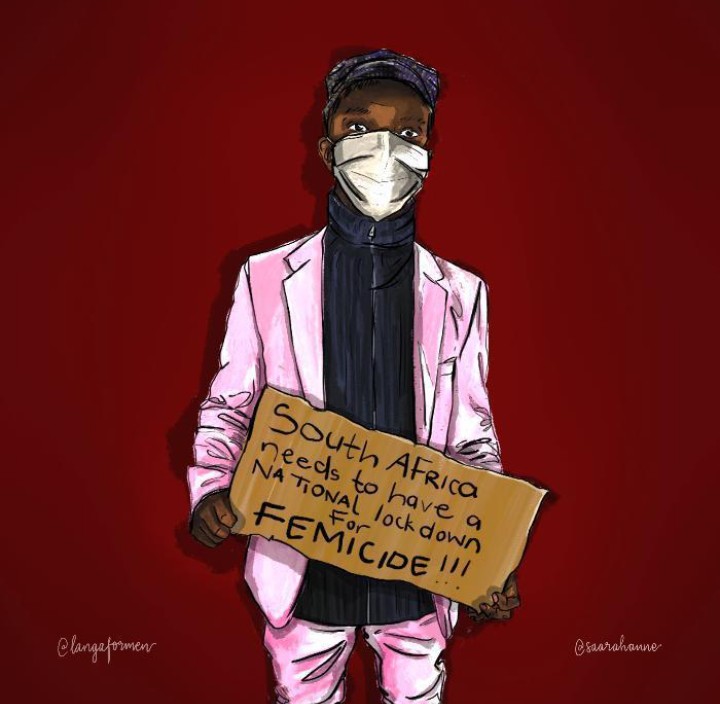 South AFRICA
needs to have a
NATIONAL lockdown
For
FEMICIDE !!!
@langaformen
@saarahanne